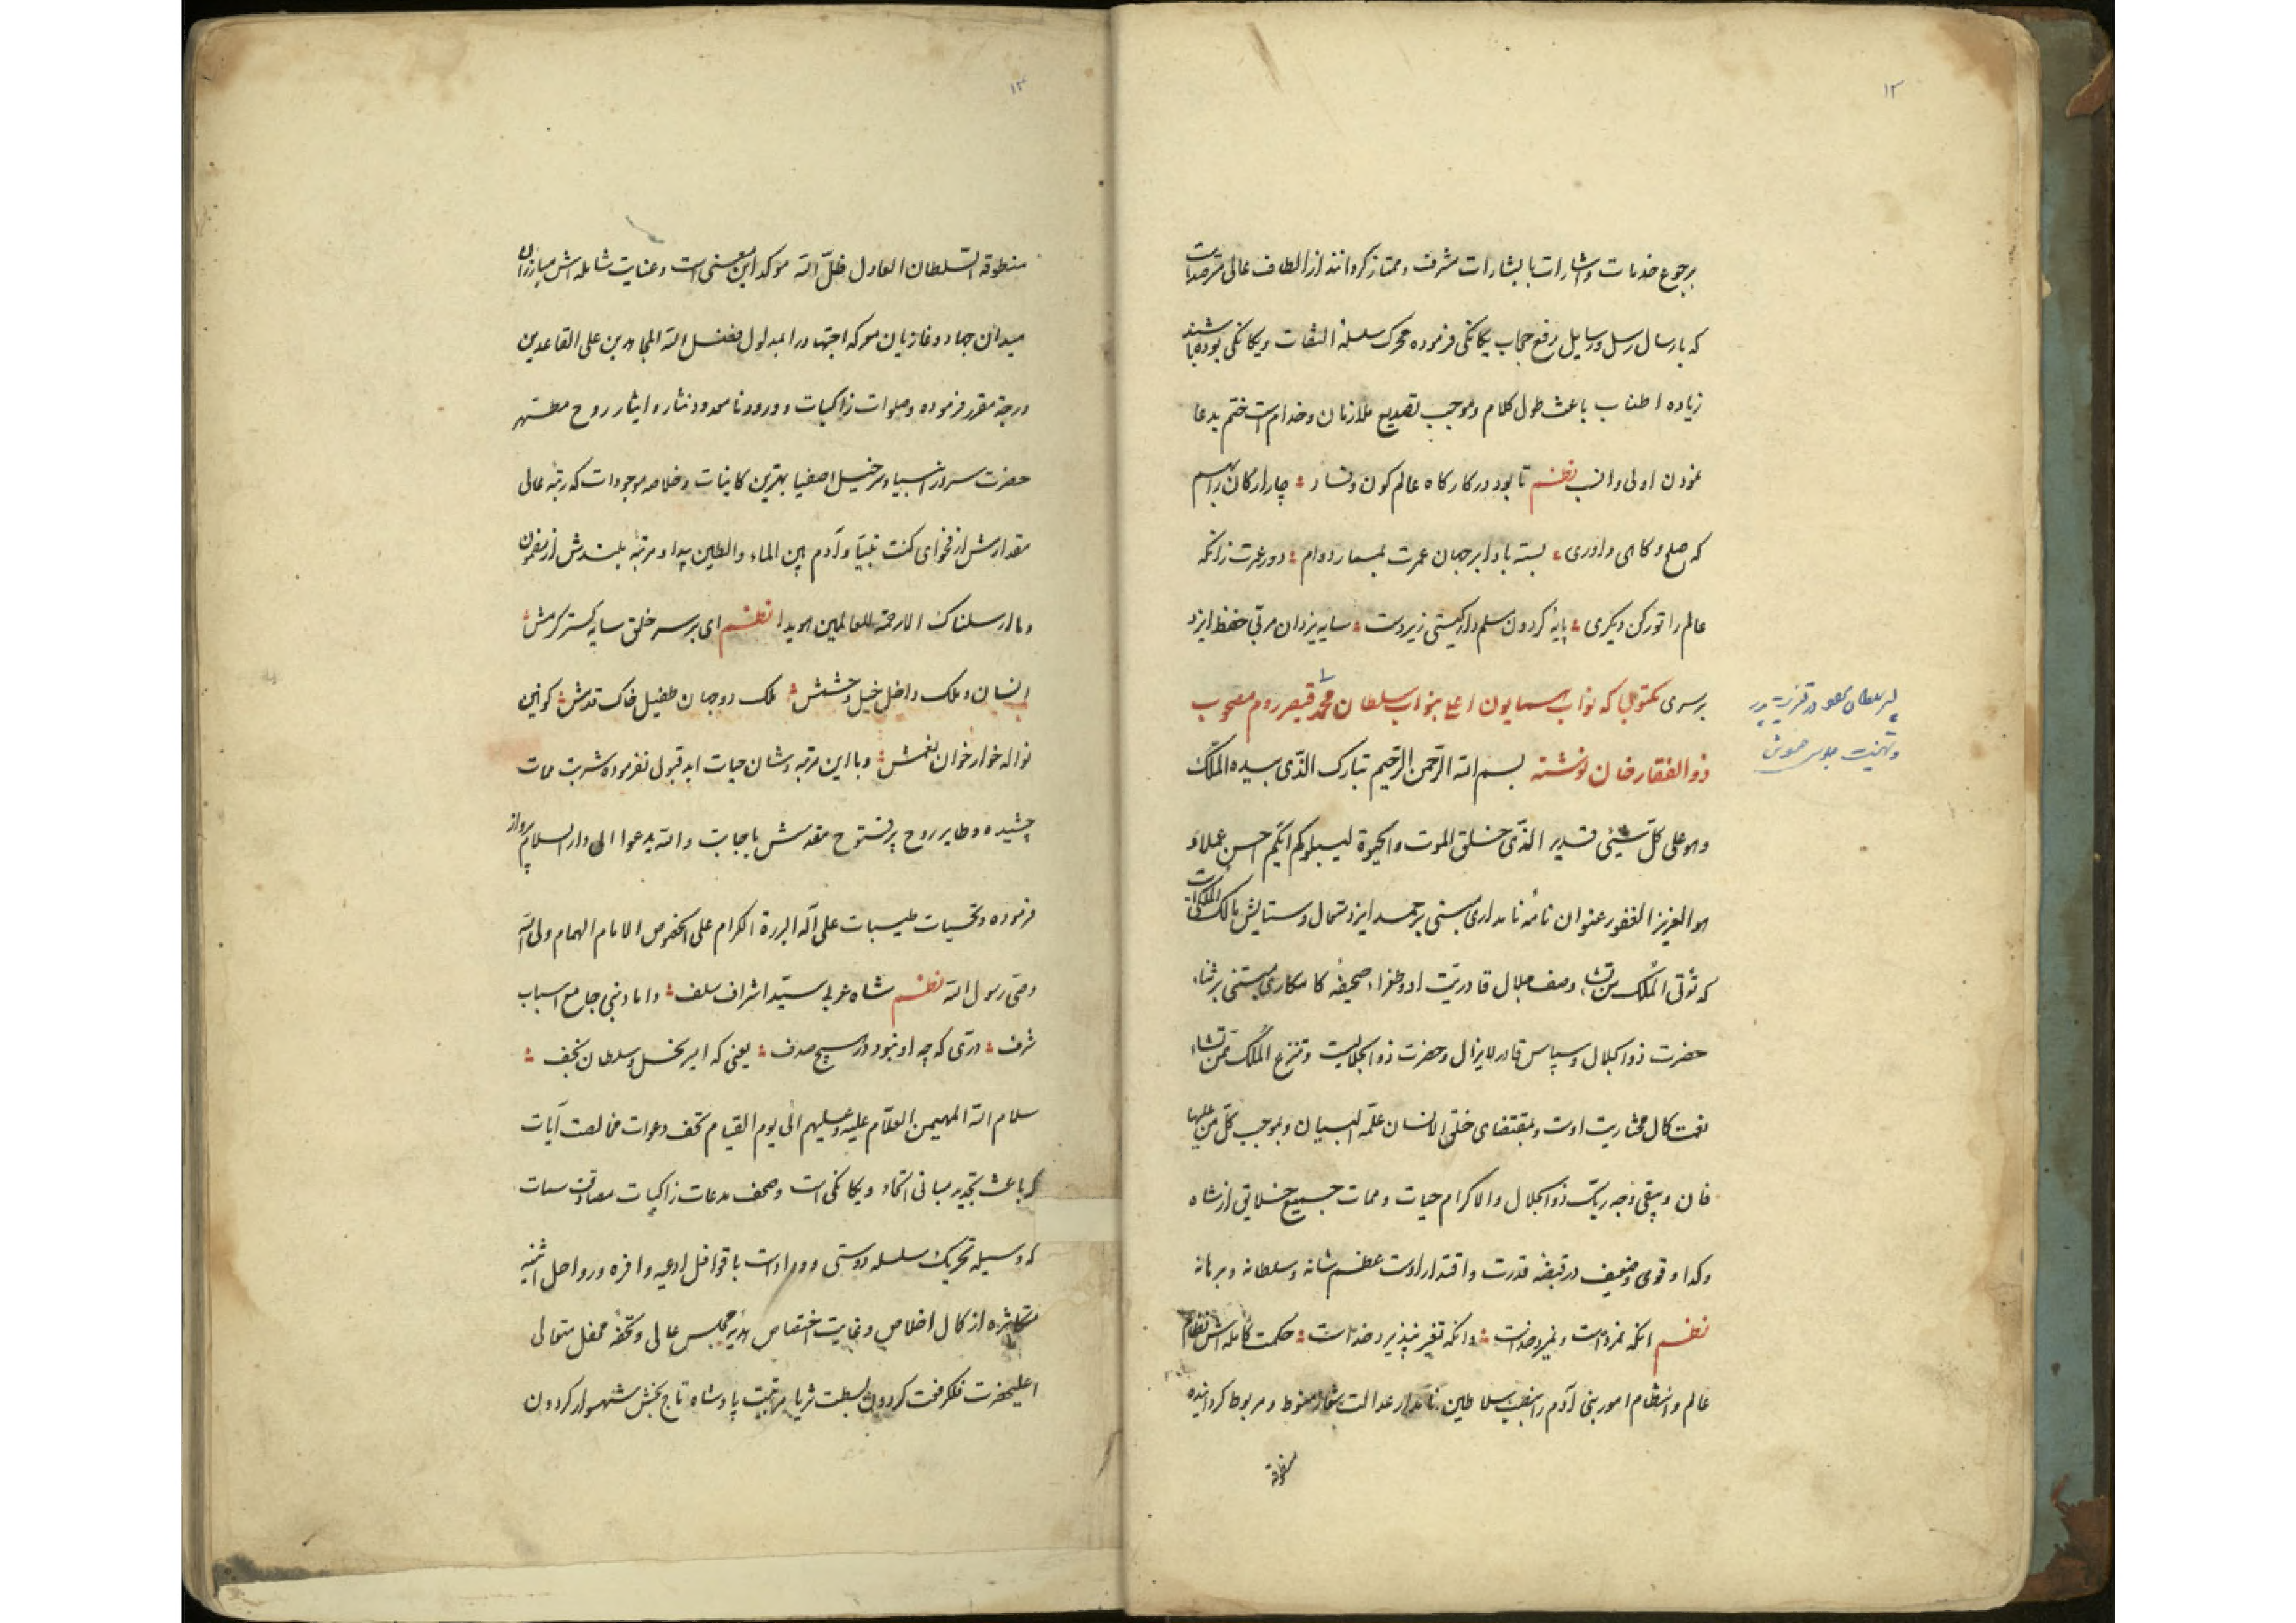 ۱۲
برجوع خدمات و اشارات با بشارات مشرف و ممتاز کردانند از الطاف عالی مترصد است
که بارسال رسل و رسایل رفع حجاب بیکانکی فرموده محرک سلسلهٔ التفات و یکانکی بوده باشند
زیاده اطناب باعث طول کلام و موجب تصدیع ملازمان و خدام است ختم بدعا
نمودن اولی و انسب نظم تا بود در کارکاه عالم کون و فساد چار ارکان را بهم
که صلح و کاهی داوری بسته بادا بر جهان عمرت بمسمار دوام دور عمرت زانکه
عالم را تو رکن دیکری پایهٔ کردون سلم دار کیتی زیردست سایه یزدان مربی حفظ ایزد
برسری مکتوبی که نواب همایون اعلی بنواب سلطان محمد قیصر روم مصحوب
پسر سلطان در تعزیت پدر
و تهنیت جلوس
ذوالفقار خان نوشته بسم الله الرحمن الرحیم تبارک الذی بیده الملک
و هو علی کل شیئی قدیر الذی خلق الموت والحیوة لیبلوکم ایکم احسن عملا و
هو العزیز الغفور عنوان نامهٔ نامداری مبنی بر حمد ایزد متعال و ستایش مالک الملکی است
که تؤتی الملک من تشاء وصف جلال قادریت او و طغراء صحیفهٔ کامکاری مبتنی بر ثناء
حضرت ذوالجلال و سپاس قادر لایزال و حضرت ذوالجلالیست و تنزع الملک ممن تشاء
نعت کمال مختاریت اوست و بمقتضای خلق الانسان علمه البیان و بموجب کل من علیها
فان و یبقی وجه ربک ذوالجلال والاکرام حیات و ممات جمیع خلایق از شاه
و کدا و قوی و ضعیف در قبضهٔ قدرت و اقتدار اوست عظم شانه و سلطانه و برهانه
نظم انکه نمرداست و نمیرد خداست وانکه تغیر نپذیرد خداست حکمت کامله اش نظام
عالم و انتظام امور بنی آدم را بنصب سلاطین نامدار عدالت شعار منوط و مربوط کردانیده
منطوقه
۱۳
منطوقه السلطان العادل ظل الله موکد این معنی است و عنایت شامله اش مبارزان
میدان جهاد و غازیان معرکه اجتهاد را بمدلول فضل الله المجاهدین علی القاعدین
درجة مقرر فرموده و صلوات زاکیات و ورود نامحدود نثار و ایثار روح مطهر
حضرت سرور انبیا و سرخیل اصفیا بهترین کاینات و خلاصه موجودات که رتبهٔ عالی
مقدارش از فحوای کنت نبیا و آدم بین الماء والطین پیدا و مرتبهٔ بلندش از مضمون
وما ارسلناک الا رحمة للعالمین هویدا نظم ای بر سر خلق سایه کستر کرمش
انسان و ملک داخل خیل و حشمش ملک دو جهان طفیل خاک قدمش کونین
نواله خوار خوان نعمش و با این مرتبه و شان حیات ابد قبول نفرموده شربت ممات
چشیده و طایر روح پرفتوح مقدسش باجابت والله یدعوا الی دار السلام پرواز
فرموده و تحیات طیبات علی آله البررة الکرام علی الخصوص الامام الهمام ولی الله
وصی رسول الله نظم شاه عربی سید اشراف سلف داماد نبی جامع اسباب
شرف دری که چه او نبود در هیچ صدف یعنی که امیر نحل و سلطان نجف
سلام الله المهیمن العلام علیه و علیهم الی یوم القیام تحف دعوات مخالصت آیات
که باعث تجدید مبانی اتحاد و یکانکی است و صحف مدعات زاکیات مصادقت سمات
که وسیله تحریک سلسله دوستی و وداد است با قوافل ادعیه وافره و رواحل اثنیه
متکاثره از کمال اخلاص و غایت اختصاص هدیه مجلس عالی و تحفهٔ محفل متعالی
اعلیحضرت فلک رفعت کردون بسطت ثریا مرتبت پادشاه تاج بخش شهسوار کردون